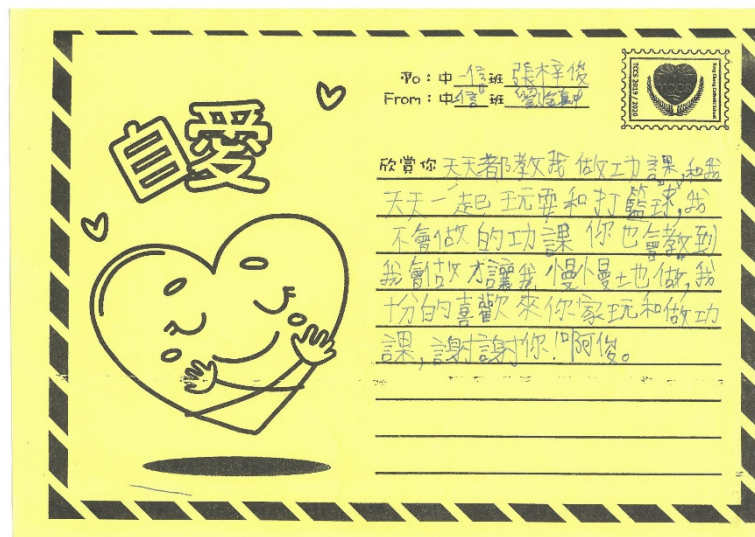 自愛
To：中一信班 張梓俊
From：中一信班
TCCS 2019 / 2020
欣賞你天天都教我做功課,和我
天天一起玩耍和打籃球,我
不會做的功課你也會教到
我會做才讓我慢慢地做,我
十分的喜歡來你家玩和做功
課,謝謝你!阿俊。